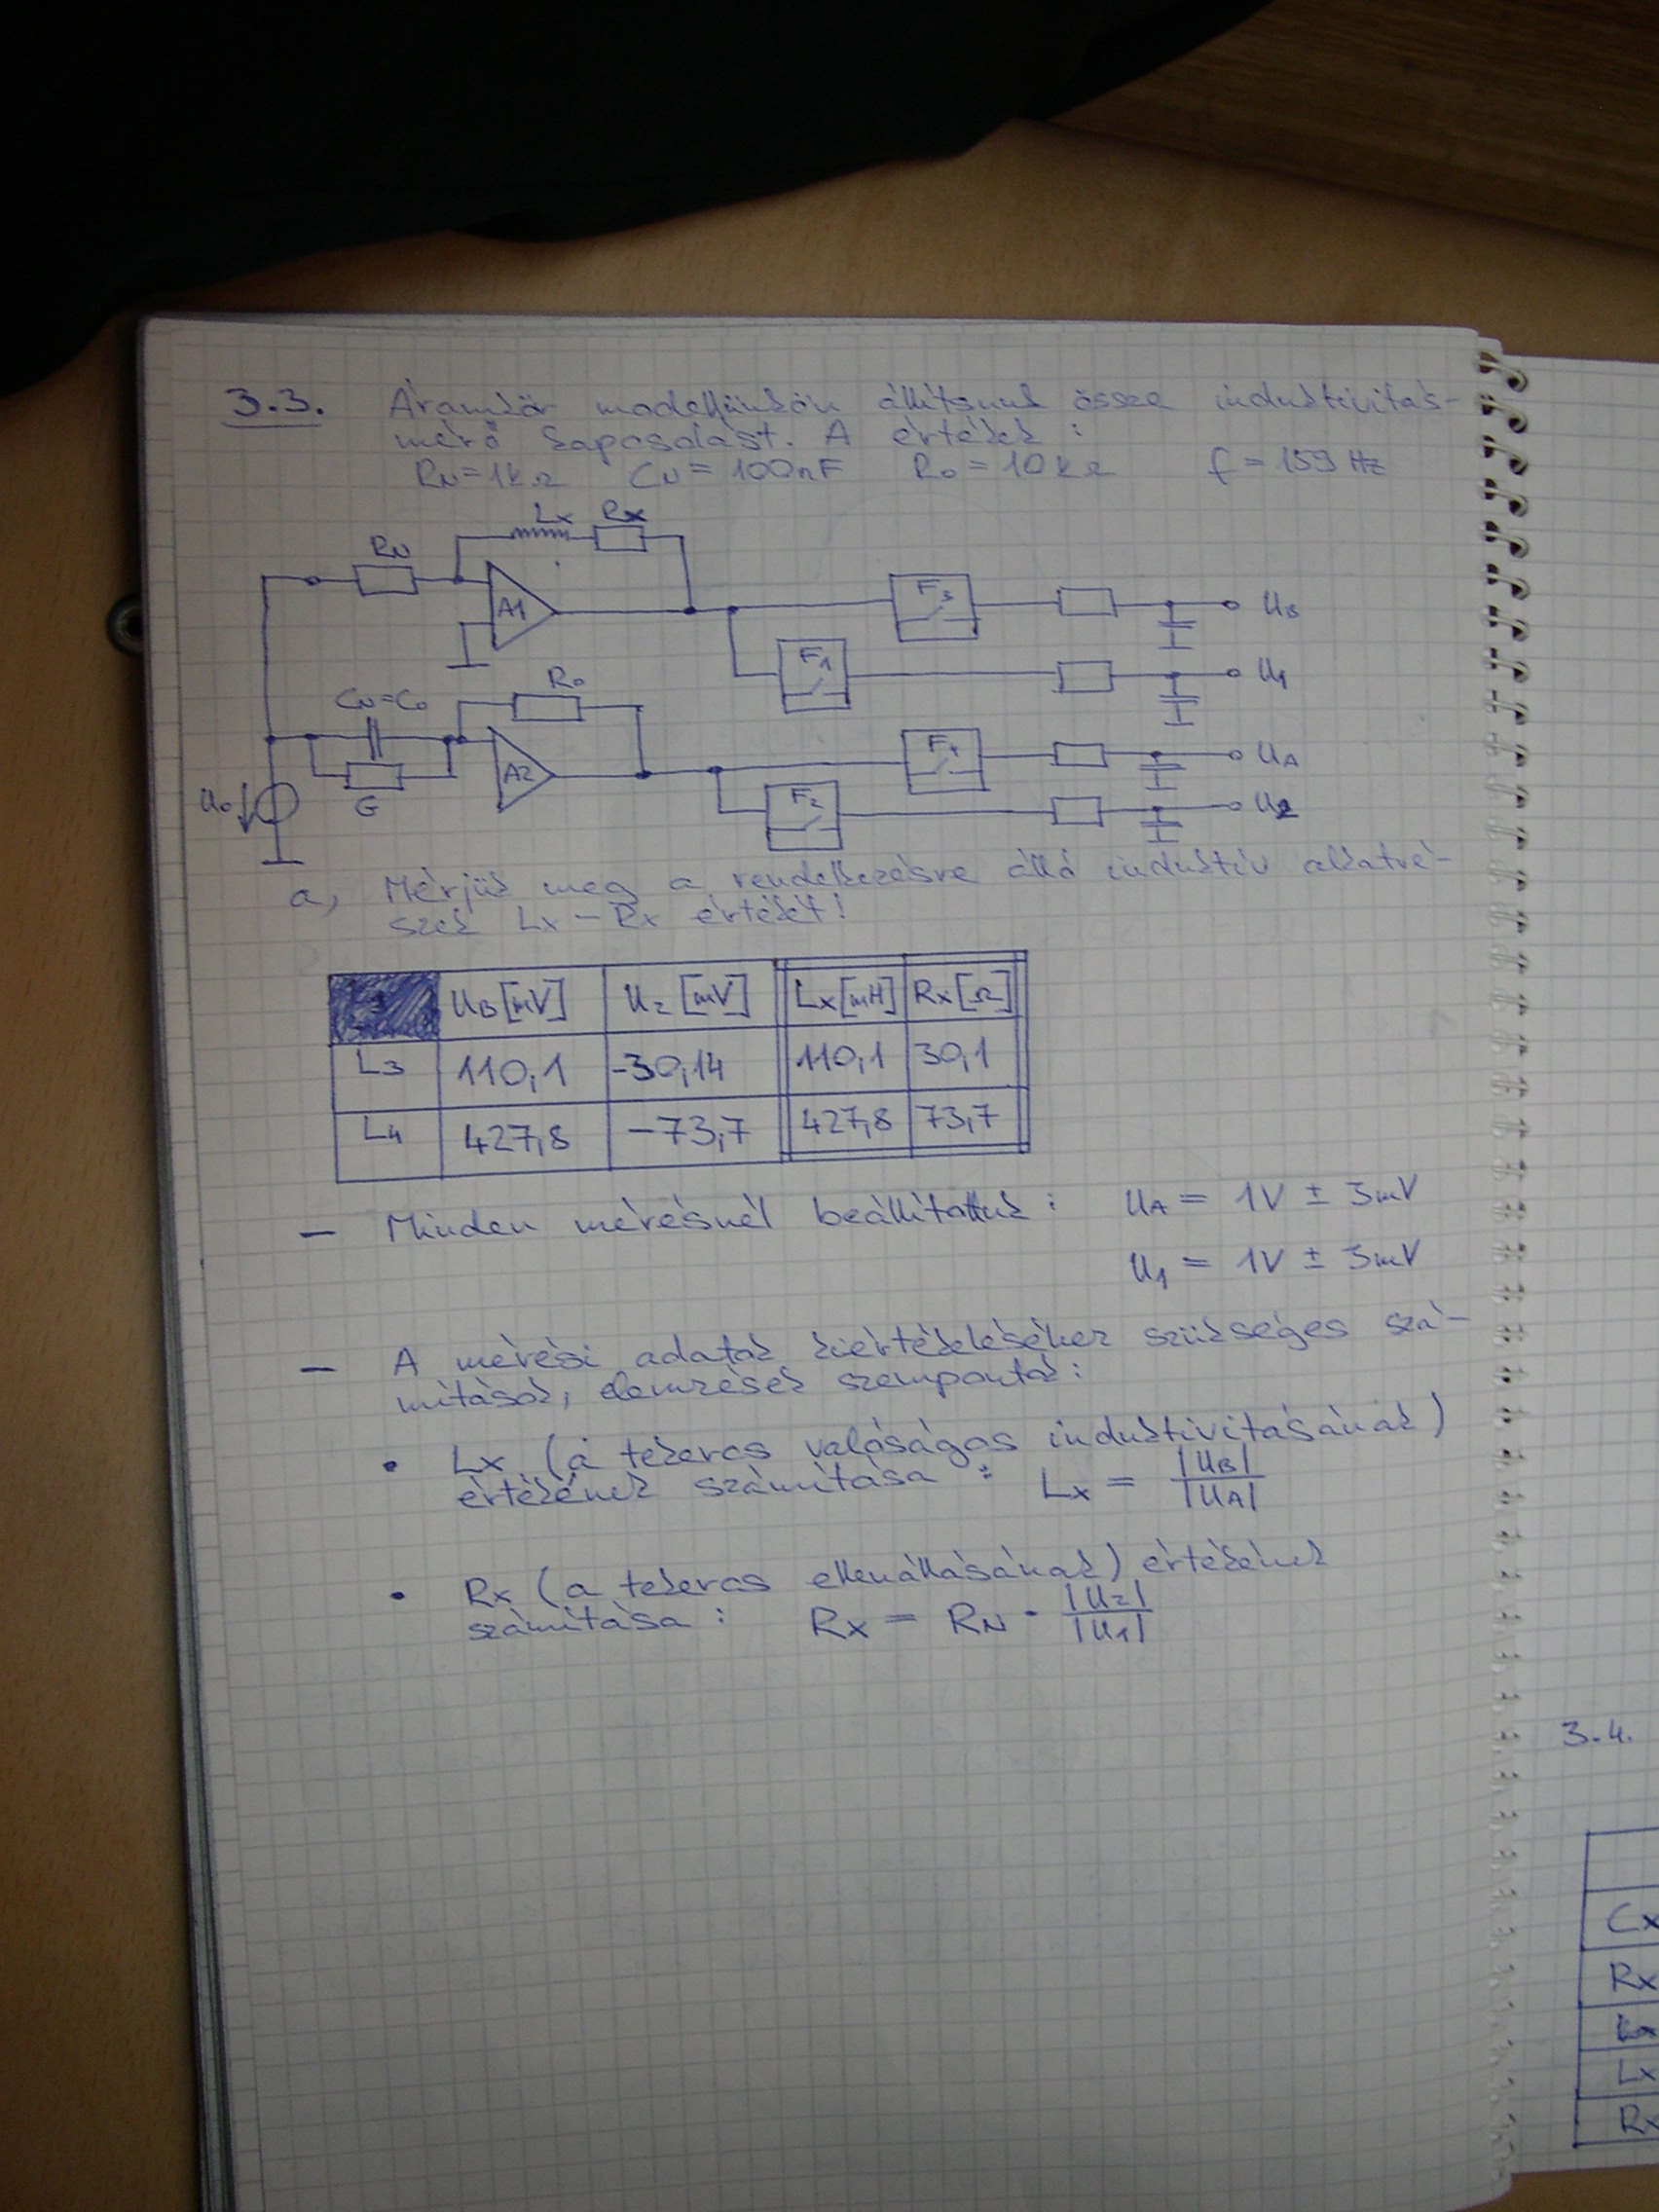 3.3. Áramkör modellünkön állítsunk össze induktivitás-
mérő kapcsolást. A értékek :
RN=1kΩ CN=100nF R0=10kΩ f=159 Hz
Lx Rx
RN
A1
F3
UB
F1
U1
R0
CN=C0
A2
F4
UA
F2
U2
U0
G
a, Mérjük meg a rendelkezésre álló induktív alkatré-
szek Lx – Rx értékét!
UB[mV] U2 [mV] Lx[mH] Rx[Ω]
L3 110,1 -30,14 110,1 30,1
L4 427,8 -73,7 427,8 73,7
– Minden mérésnél beállítottuk : UA = 1V ± 3mV
U1 = 1V ± 3mV
– A mérési adatok kiértékeléséhez szükséges szá-
mítások, elemzések szempontok:
• Lx (a tekercs valóságos induktivitásának)
értékének számítása : Lx = |UB| / |UA|
• Rx (a tekercs ellenállásának) értékének
számítása : Rx = RN · |U2| / |U1|
3.4.
Cx
Rx
Lx
Rx